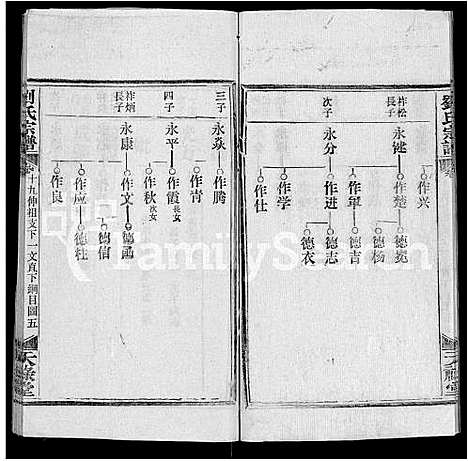 劉氏宗譜
祚松長子
永㨗
作兴
作楚
德宽
德杨
次子
永分
作军
德吉
作进
德志
德衣
作学
作仕
三子
永焱
作腾
作青
四子
永平
作霞 長女
作秋 次女
祚炳長子
永康
作文
德鸿
德信
作应
德柱
作良
劉氏宗譜
卷十九仲祖支下一文真下綱目圖五
天祿堂
FamilySearch